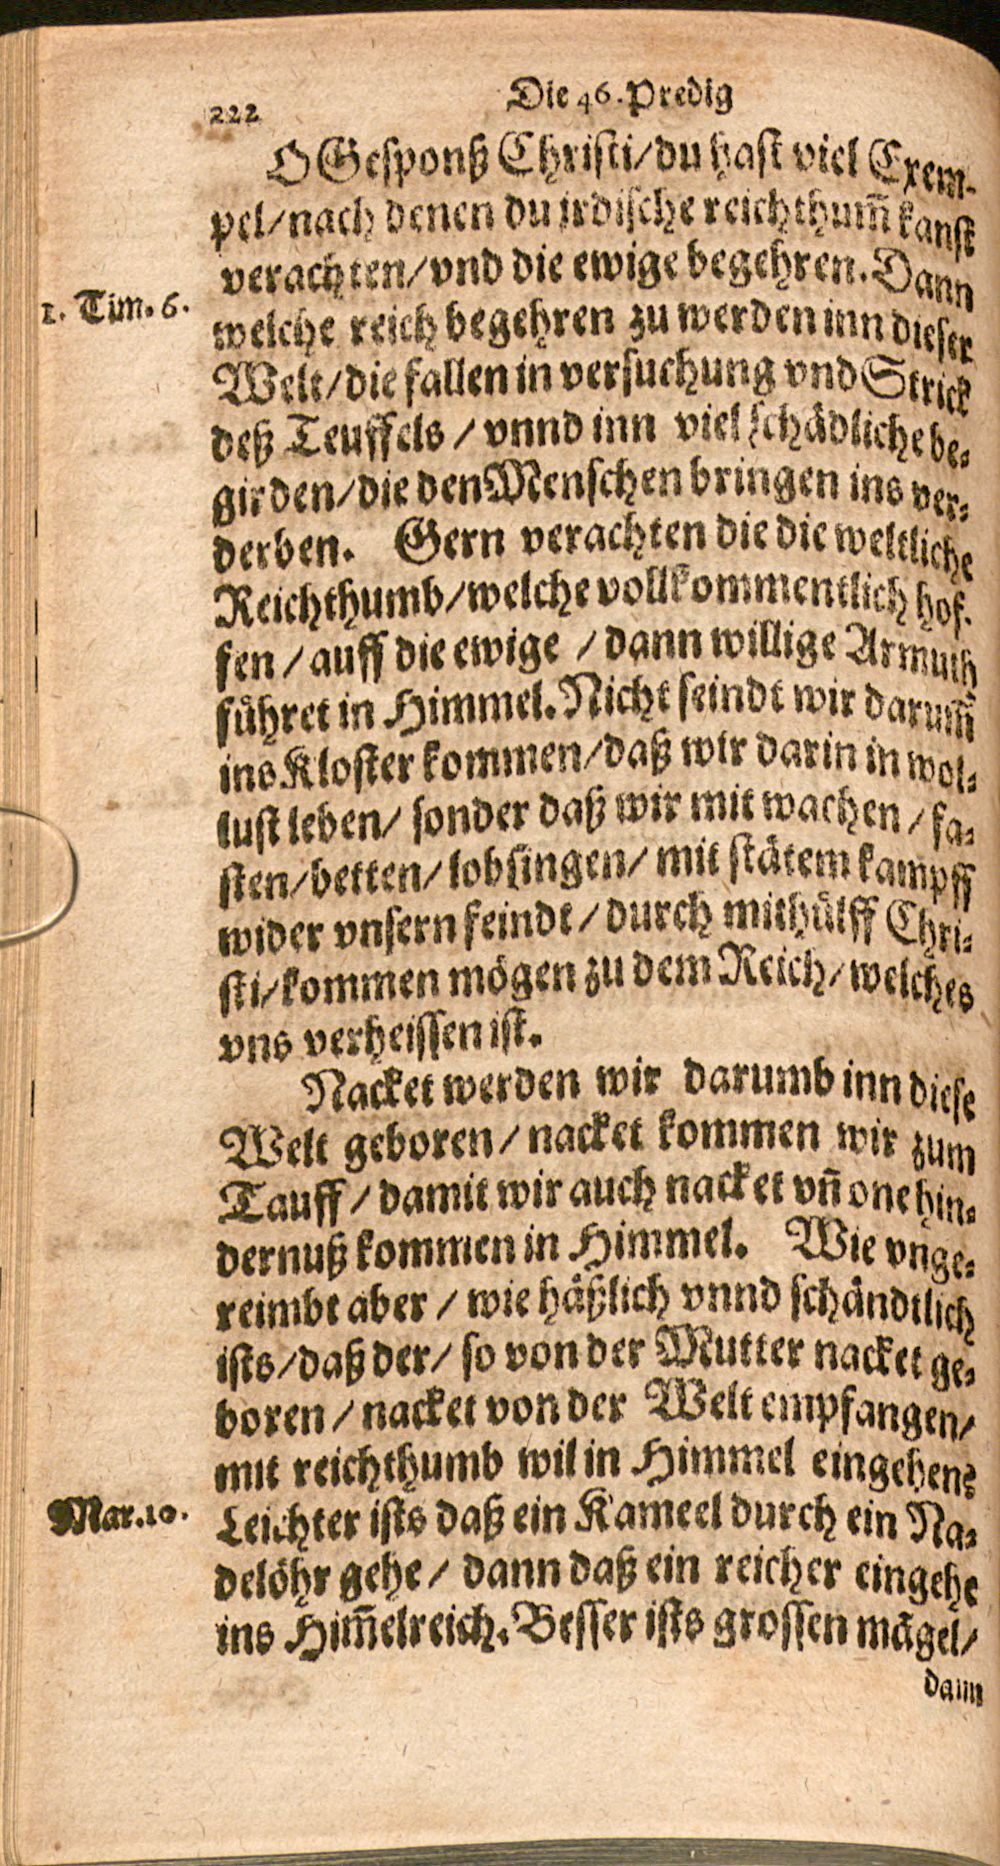 222
Die 46. Predig
O Gesponß Christi/du hast viel Exem-
pel/nach denen du irdische reichthum̃ kanst
verachten/vnd die ewige begehren. Dann
1. Tim. 6.
welche reich begehren zu werden inn dieser
Welt/die fallen in versuchung vnd Strick
deß Teuffels / vnnd inn viel schädliche be-
girden/die den Menschen bringen ins ver-
derben. Gern verachten die die weltliche
Reichthumb/welche vollkommentlich hof-
fen / auff die ewige / dann willige Armuth
führet in Himmel. Nicht seindt wir darum̃
ins Kloster kommen/daß wir darin in wol-
lust leben/ sonder daß wir mit wachen / fa-
sten/betten/lobsingen/ mit stätem kampff
wider vnsern feindt / durch mithülff Chri-
sti/kommen mögen zu dem Reich/welches
vns verheissen ist.
Nacket werden wir darumb inn diese
Welt geboren / nacket kommen wir zum
Tauff / damit wir auch nacket vñ one hin-
dernuß kommen in Himmel. Wie vnge-
reimbt aber / wie häßlich vnnd schändtlich
ists/daß der/ so von der Mutter nacket ge-
boren / nacket von der Welt empfangen/
mit reichthumb wil in Himmel eingehen?
Mar.10.
Leichter ists daß ein Kameel durch ein Na-
delöhr gehe / dann daß ein reicher eingehe
ins Him̃elreich. Besser ists grossen mägel/
dann